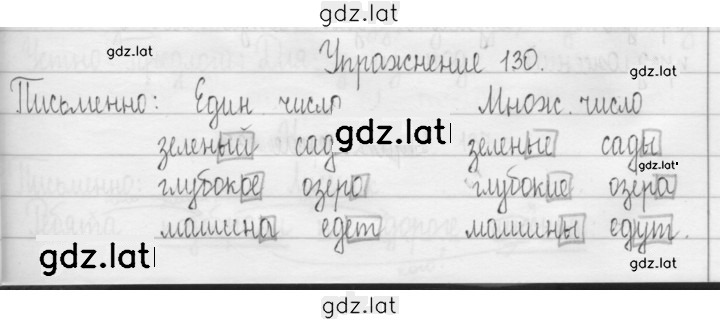 gdz.lat
gdz.lat
Упражнение 130.
gdz.lat
Письменно: Един число Множ. число
зеленый сад зеленые сады
gdz.lat
gdz.lat
глубокое озеро глубокие озера
машина едет машины едут.
gdz.lat
gdz.lat
gdz.lat